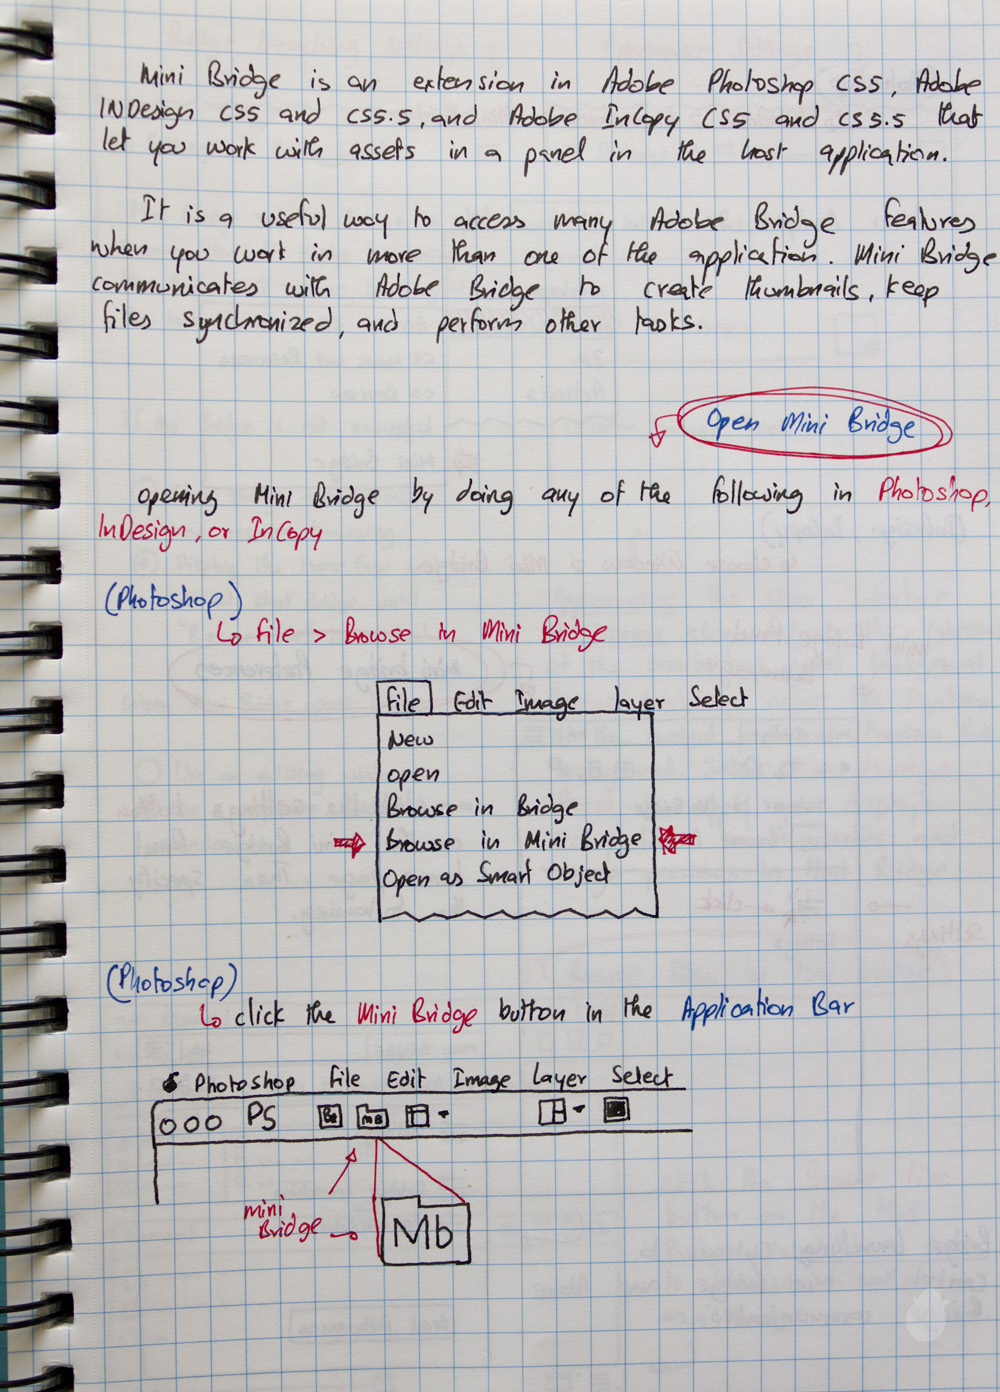 Mini Bridge is an extension in Adobe Photoshop CS5, Adobe
INDesign CS5 and CS5.5, and Adobe InCopy CS5 and CS5.5 that
let you work with assets in a panel in the host application.
It is a useful way to access many Adobe Bridge features
when you work in more than one of the application. Mini Bridge
communicates with Adobe Bridge to create thumbnails, keep
files synchronized, and perform other tasks.
Open Mini Bridge
opening Mini Bridge by doing any of the following in Photoshop,
InDesign, or InCopy
(Photoshop)
File > Browse in Mini Bridge
File Edit Image layer Select
New
open
Browse in Bridge
Browse in Mini Bridge
Open as Smart Object
(Photoshop)
click the Mini Bridge button in the Application Bar
Photoshop File Edit Image Layer Select
PS Br MB
mini
Bridge
Mb